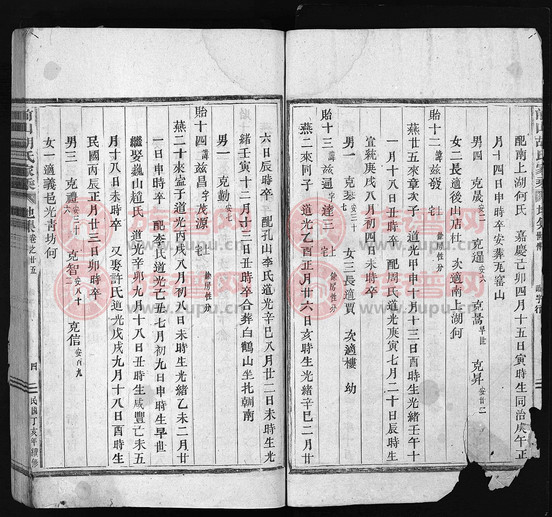 配南上湖何氏 嘉慶己卯四月十五日寅時生同治庚午正
月十四日申時卒安葬瓦窰山
男四 克晟 克暹 克暠早世 克昇
女二長適後山店杜 次適南上湖何
貽十二 諱 茲發 徐居性分
燕廿五來章次子 道光甲申十月十三日酉時生光緒壬午十
一月十八日未時卒 配周氏道光庚寅七月二十日辰時生
宣統庚戌八月初四日亥時卒
男一 克 女三長適賈 次適樓 幼
貽十三 諱 茲通 字達三 徐居性分
燕二來同子 道光乙酉正月廿六日亥時生光緒辛巳二月廿
六日辰時卒 配孔山虞氏道光辛巳八月廿二日未時生光
緒壬寅十二月十三日丑時卒合葬白鶴山坐扎朝南
男一 克勳
貽十四 諱 茲昌 字茂源 徐居性分
燕二十來益子 道光丙戌八月初八日未時生光緒乙未二月廿
一日申時卒 配李氏道光己丑七月初九日申時生早世
繼娶魏山趙氏道光辛卯九月十八日丑時生咸豐己未五
月十八日未時卒 又娶許氏道光戊戌九月十八日酉時生
民國丙辰正月廿三日卯時卒
男三 克禮 克智 克信
女一適義邑光青坊何
前山胡氏家乘 地集 卷之廿五 四 民國丁亥年續修
譜普网
www.jiapu.tv
www.zupu.cn